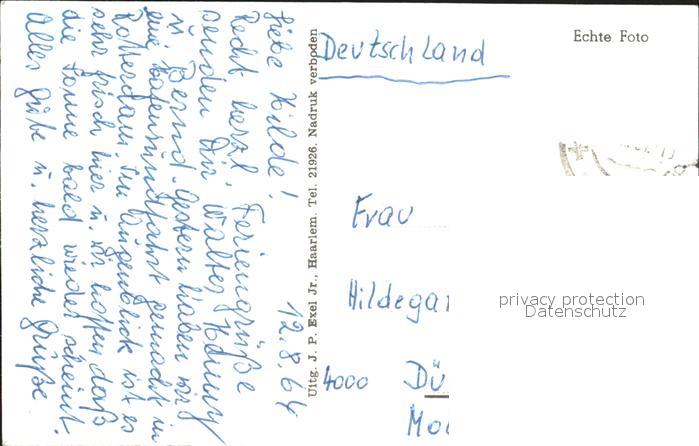 12.8.64
Liebe Hilde!
Recht herzl. Feriengrüße
senden Dir Walter, Henny
u. Bernd. Gestern haben wir
eine Hafenrundfahrt gemacht in
Rotterdam. Im Augenblick ist es
sehr frisch hier u. wir hoffen daß
die Sonne bald wieder scheint.
Alles Gute u. herzliche Grüße
Uitg. J. P. Exel Jr., Haarlem. Tel. 21926. Nadruk verboden
Echte Foto
Deutschland
Frau
Hildegar
4000 Dü
Mo
privacy protection
Datenschutz